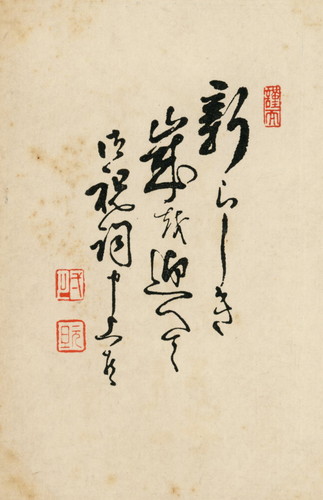 新らしき
歳を迎へて
御祝詞申上候
元旦